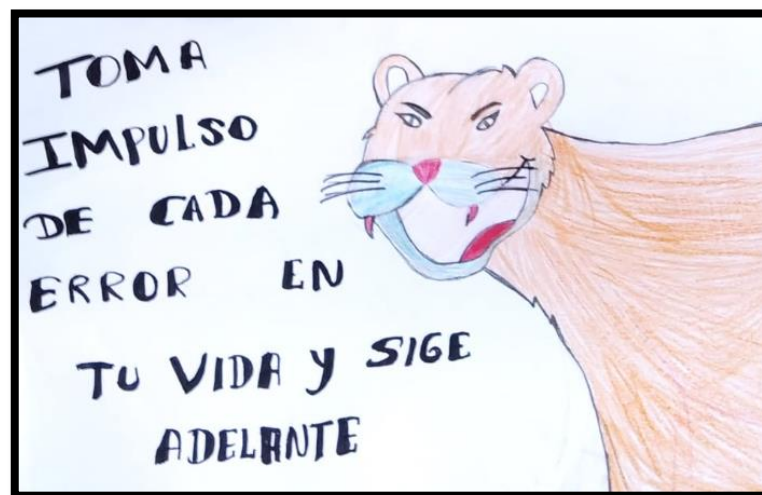 TOMA
IMPULSO
DE CADA
ERROR EN
TU VIDA Y SIGE
ADELANTE